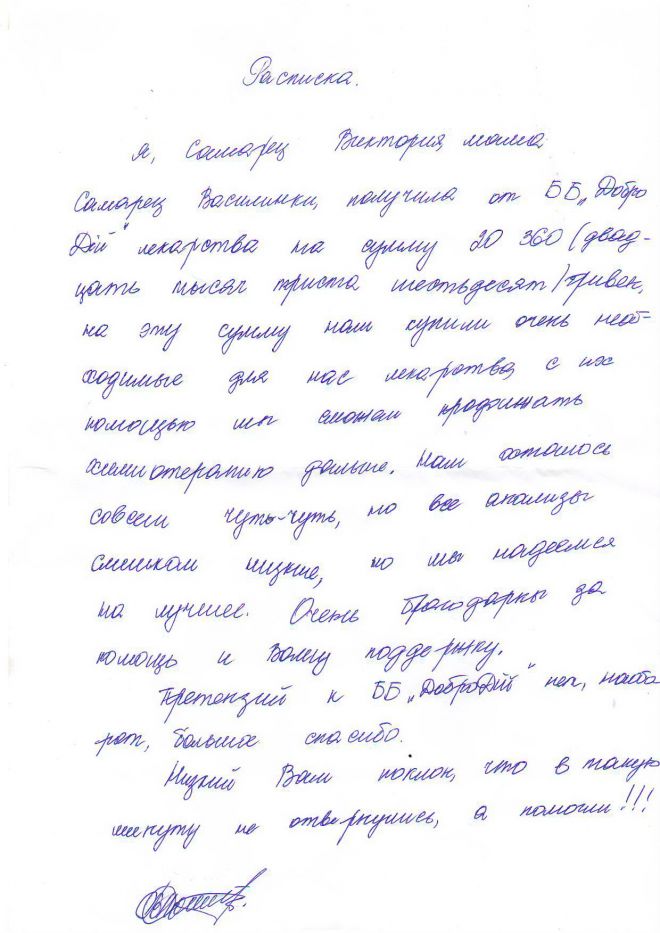 Расписка.
Я, Самарец Виктория, мама
Самарец Василинки, получила от ББ „Добро
Дій“ лекарства на сумму 20 360 (двад-
цать тысяч триста шестьдесят) гривен,
на эту сумму нам купили очень необ-
ходимые для нас лекарства, с их
помощью мы сможем продолжать
химиотерапию дальше. Нам осталось
совсем чуть-чуть, но все анализы
слишком низкие, но мы надеемся
на лучшее. Очень благодарны за
помощь и Вашу поддержку.
Претензий к ББ „ДоброДій“ нет, наоба
рот, большое спасибо.
Низкий Вам поклон, что в такую
минуту не отвернулись, а помогли!!!